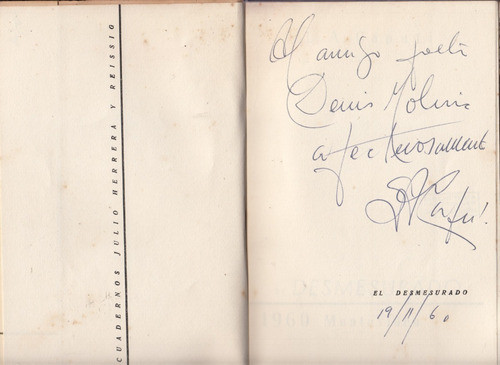 CUADERNOS JULIO HERRERA Y REISSIG
Al amigo poeta
Denis Molina
afectuosamente
EL DESMESURADO
19/11/60